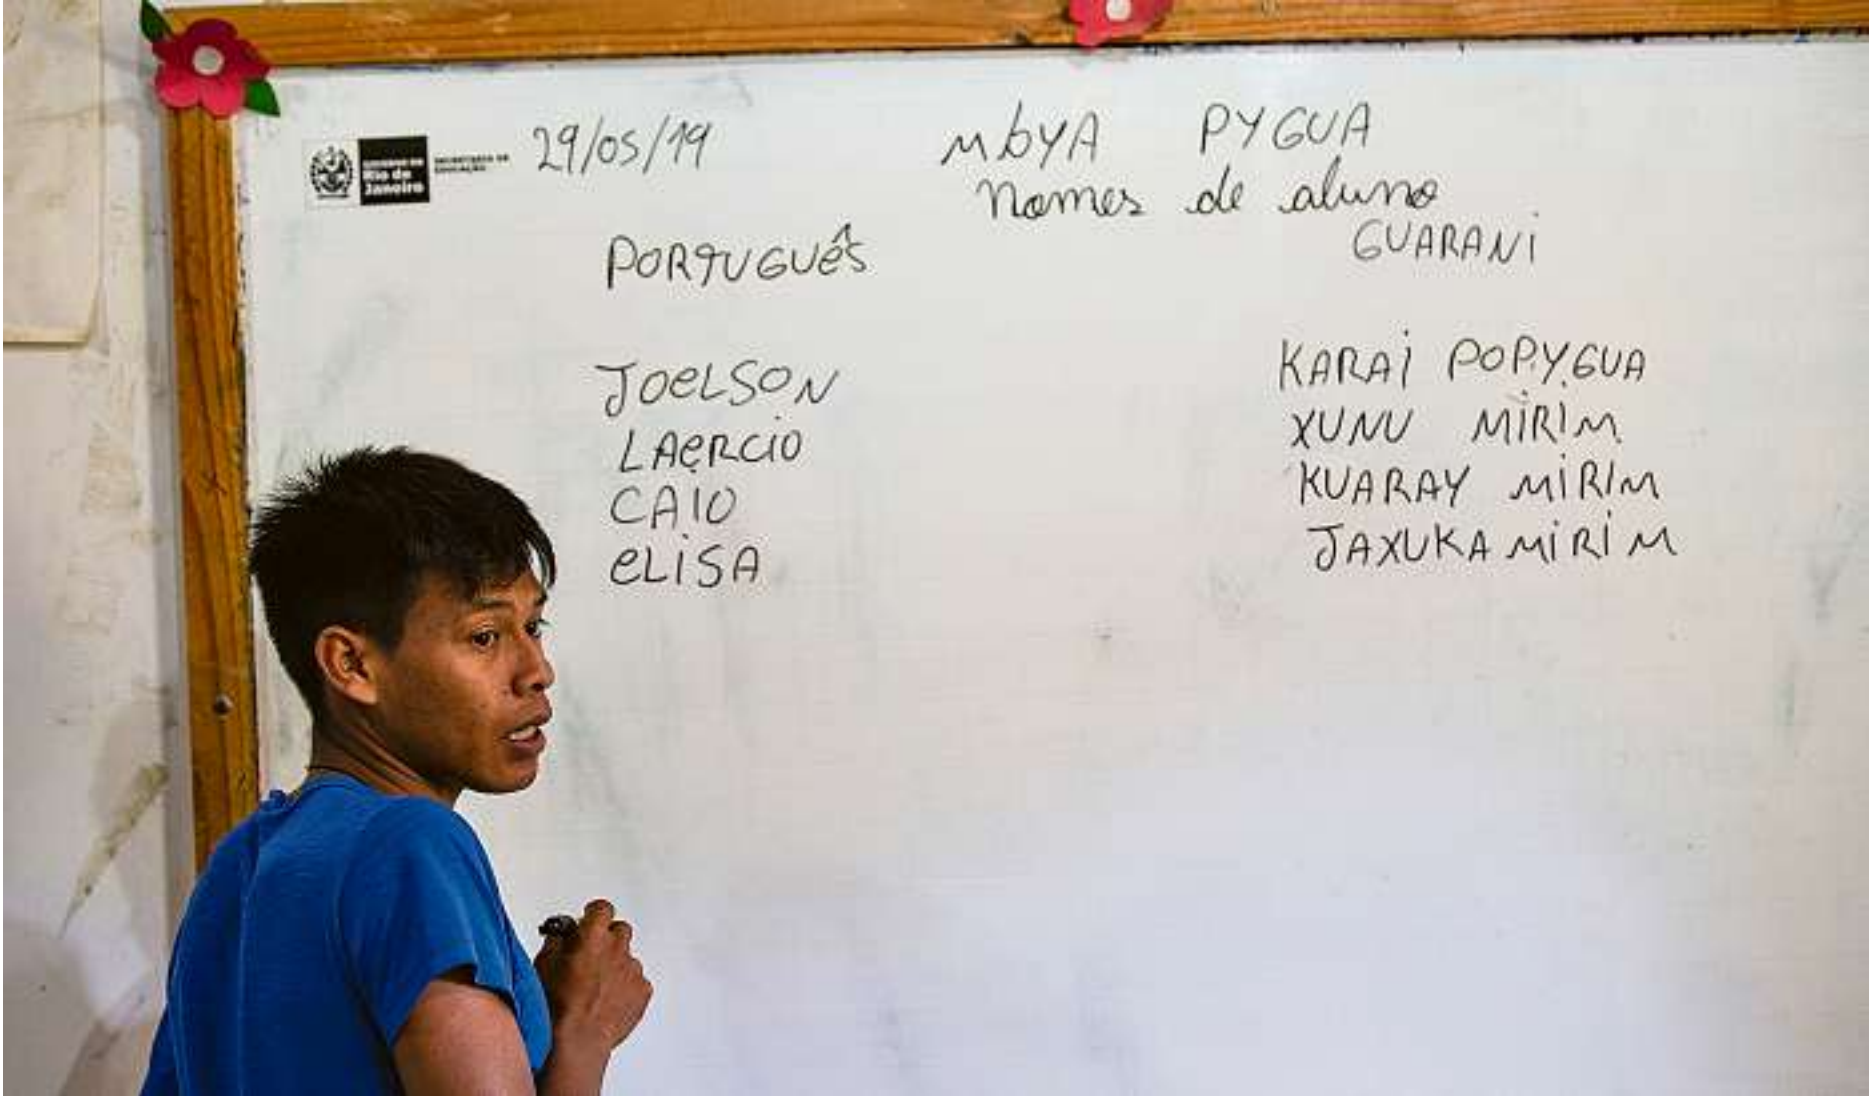 GOVERNO DO
Rio de
Janeiro
SECRETARIA DE
EDUCAÇÃO
29/05/19
MbYA PYGUA
Nomes de aluno
PORTUGUêS
GUARANi
JOeLSON
KARAi POPYGUA
LAeRCiO
XUNU MiRiM
CAIO
KUARAY MiRIM
eLiSA
JAXUKA MiRiM